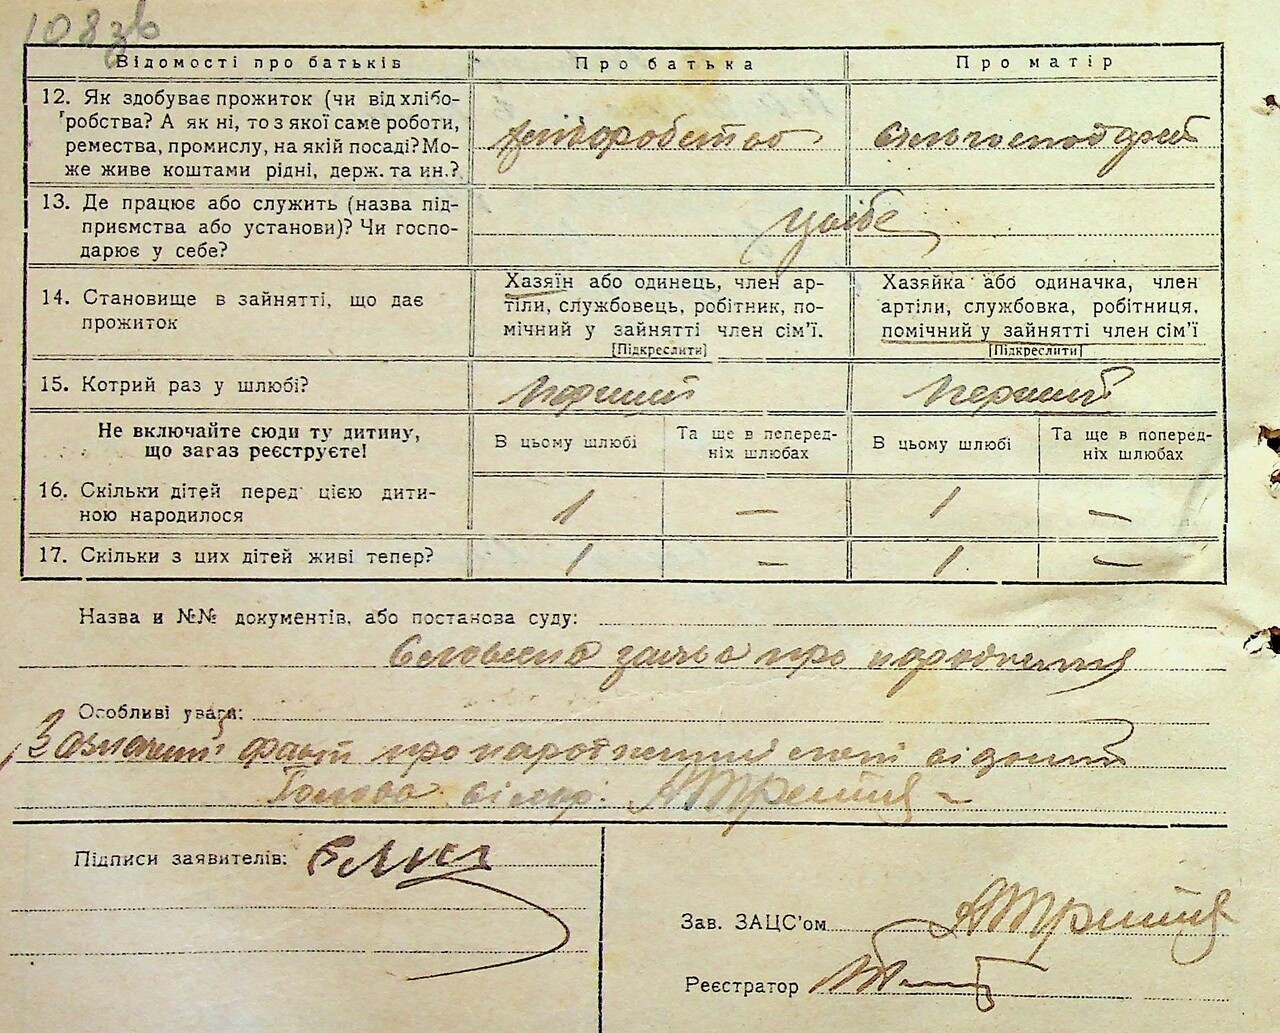 108зв
Відомості про батьків
Про батька
Про матір
12. Як здобуває прожиток (чи від хлібо-
робства? А як ні, то з якої саме роботи,
ремества, промислу, на якій посаді? Мо-
же живе коштами рідні, держ. та ин.?
хліборобство
13. Де працює або служить (назва під-
приємства або установи)? Чи госпо-
дарює у себе?
14. Становище в зайнятті, що дає
прожиток
Хазяїн або одинець, член ар-
тіли, службовець, робітник, по-
мічний у зайнятті член сім'ї.
[Підкреслити]
Хазяйка або одиначка, член
артіли, службовка, робітниця,
помічний у зайнятті член сім'ї
[Підкреслити]
15. Котрий раз у шлюбі?
перший
перший
Не включайте сюди ту дитину,
що загаз реєструєте!
В цьому шлюбі
Та ще в поперед-
ніх шлюбах
В цьому шлюбі
Та ще в поперед-
ніх шлюбах
16. Скільки дітей перед цією дити-
ною народилося
1 — 1 —
17. Скільки з цих дітей живі тепер?
1 — 1 —
Назва и №№ документів, або постанова суду:
Словесна заява про народження
Особливі уваги:
факт про народження мені відомий
Голова сільр.
Підписи заявителів:
Зав. ЗАЦС'ом
Реєстратор